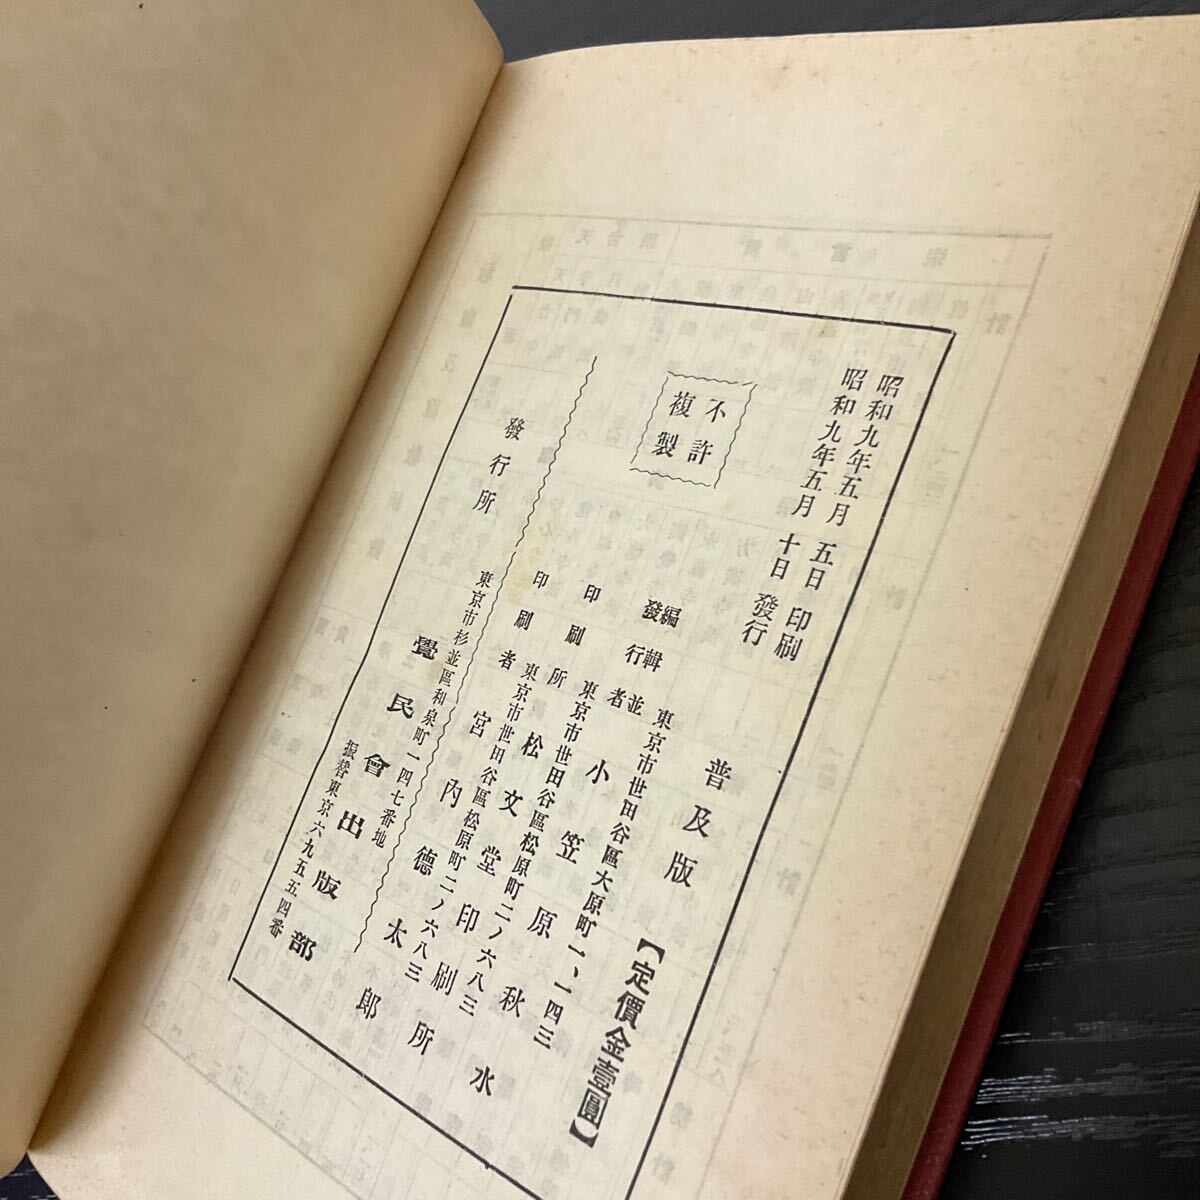 昭和九年五月五日印刷
昭和九年五月十日發行
普及版
【定價金壹圓】
不許
複製
東京市世田谷區大原町一、一四三
編輯並
發行者
小笠原秋水
東京市世田谷區松原町二ノ六八三
印刷所
松文堂印刷所
東京市世田谷區松原町二ノ六八三
印刷者
宮內德太郎
東京市杉並區和泉町一四七番地
發行所
覺民會出版部
振替東京六九五五四番